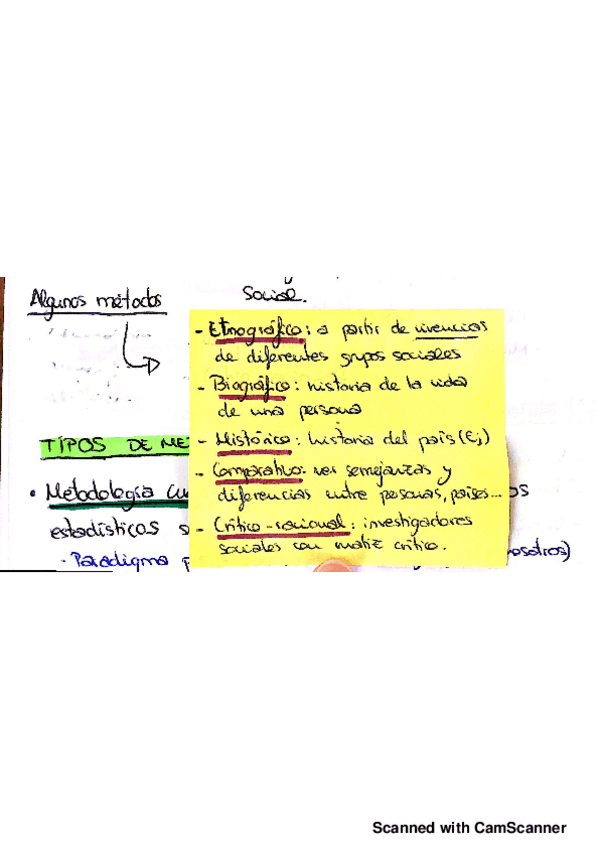 Social.
Algunos métodos
- Etnográfico: a partir de vivencias
de diferentes grupos sociales
- Biográfico: historia de la vida
de una persona
- Histórico: historia del país (Ej)
- Comparativo: ver semejanzas y
diferencias entre personas, países...
- Crítico-racional: investigadores
sociales con matiz crítico.
TIPOS DE ME
• Metodología cu
os
estadísticos s
· Paradigma p
osotros)
Scanned with CamScanner